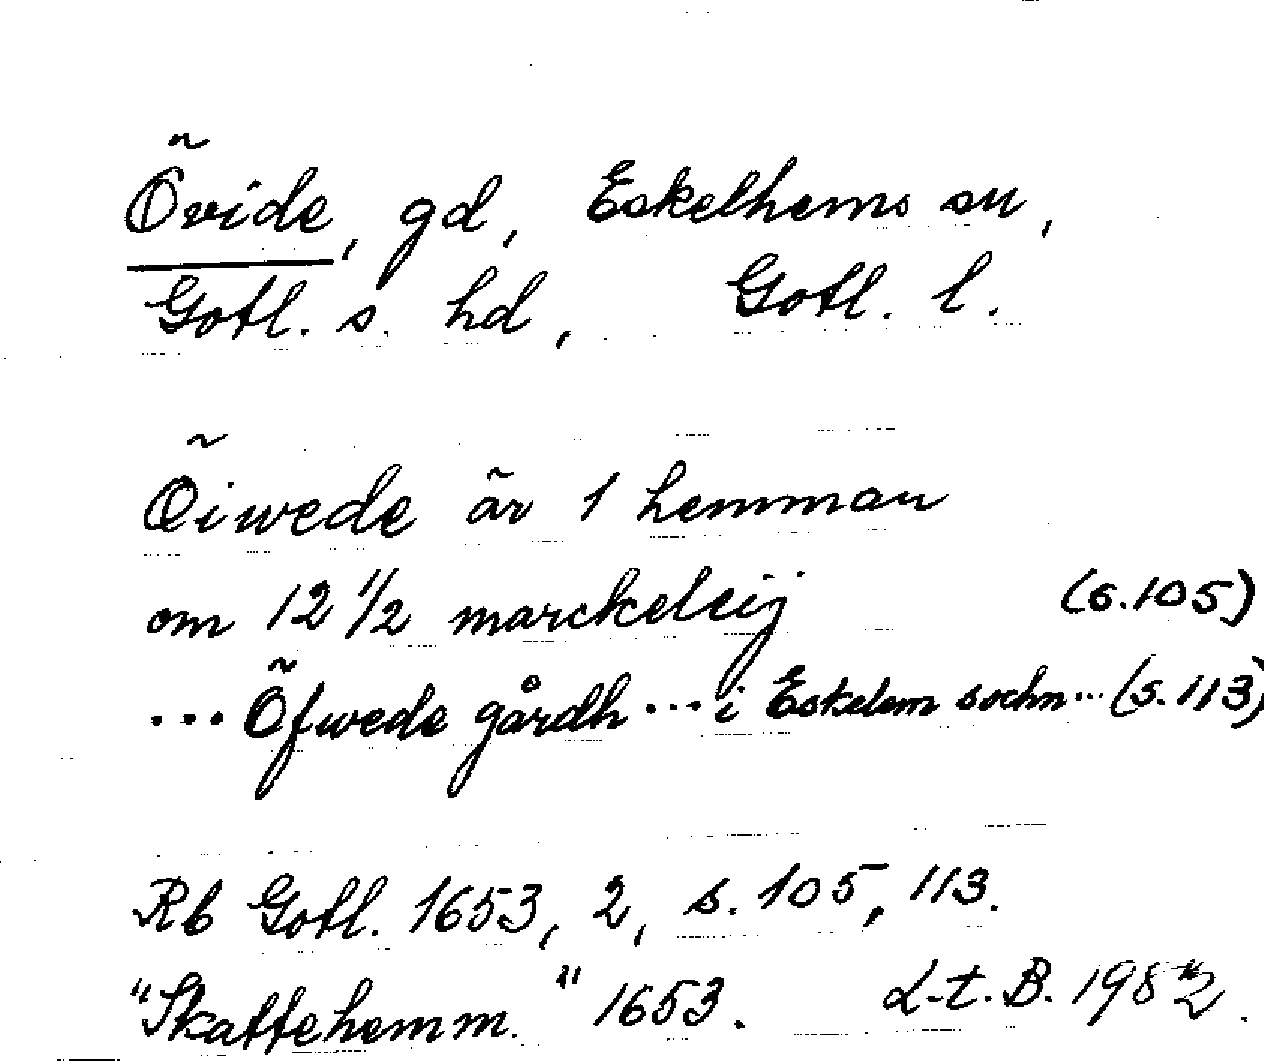 Övide, gd, Eskelhems sn,
Gotl. s. hd, Gotl. l.
Öiwede är 1 hemman
om 12 1/2 marckeleij (s.105)
... Öfwede gårdh ... i Eskelem sochn ... (s.113)
Rb Gotl. 1653, 2, s. 105, 113.
"Skattehemm." 1653. L-t. B. 1982.